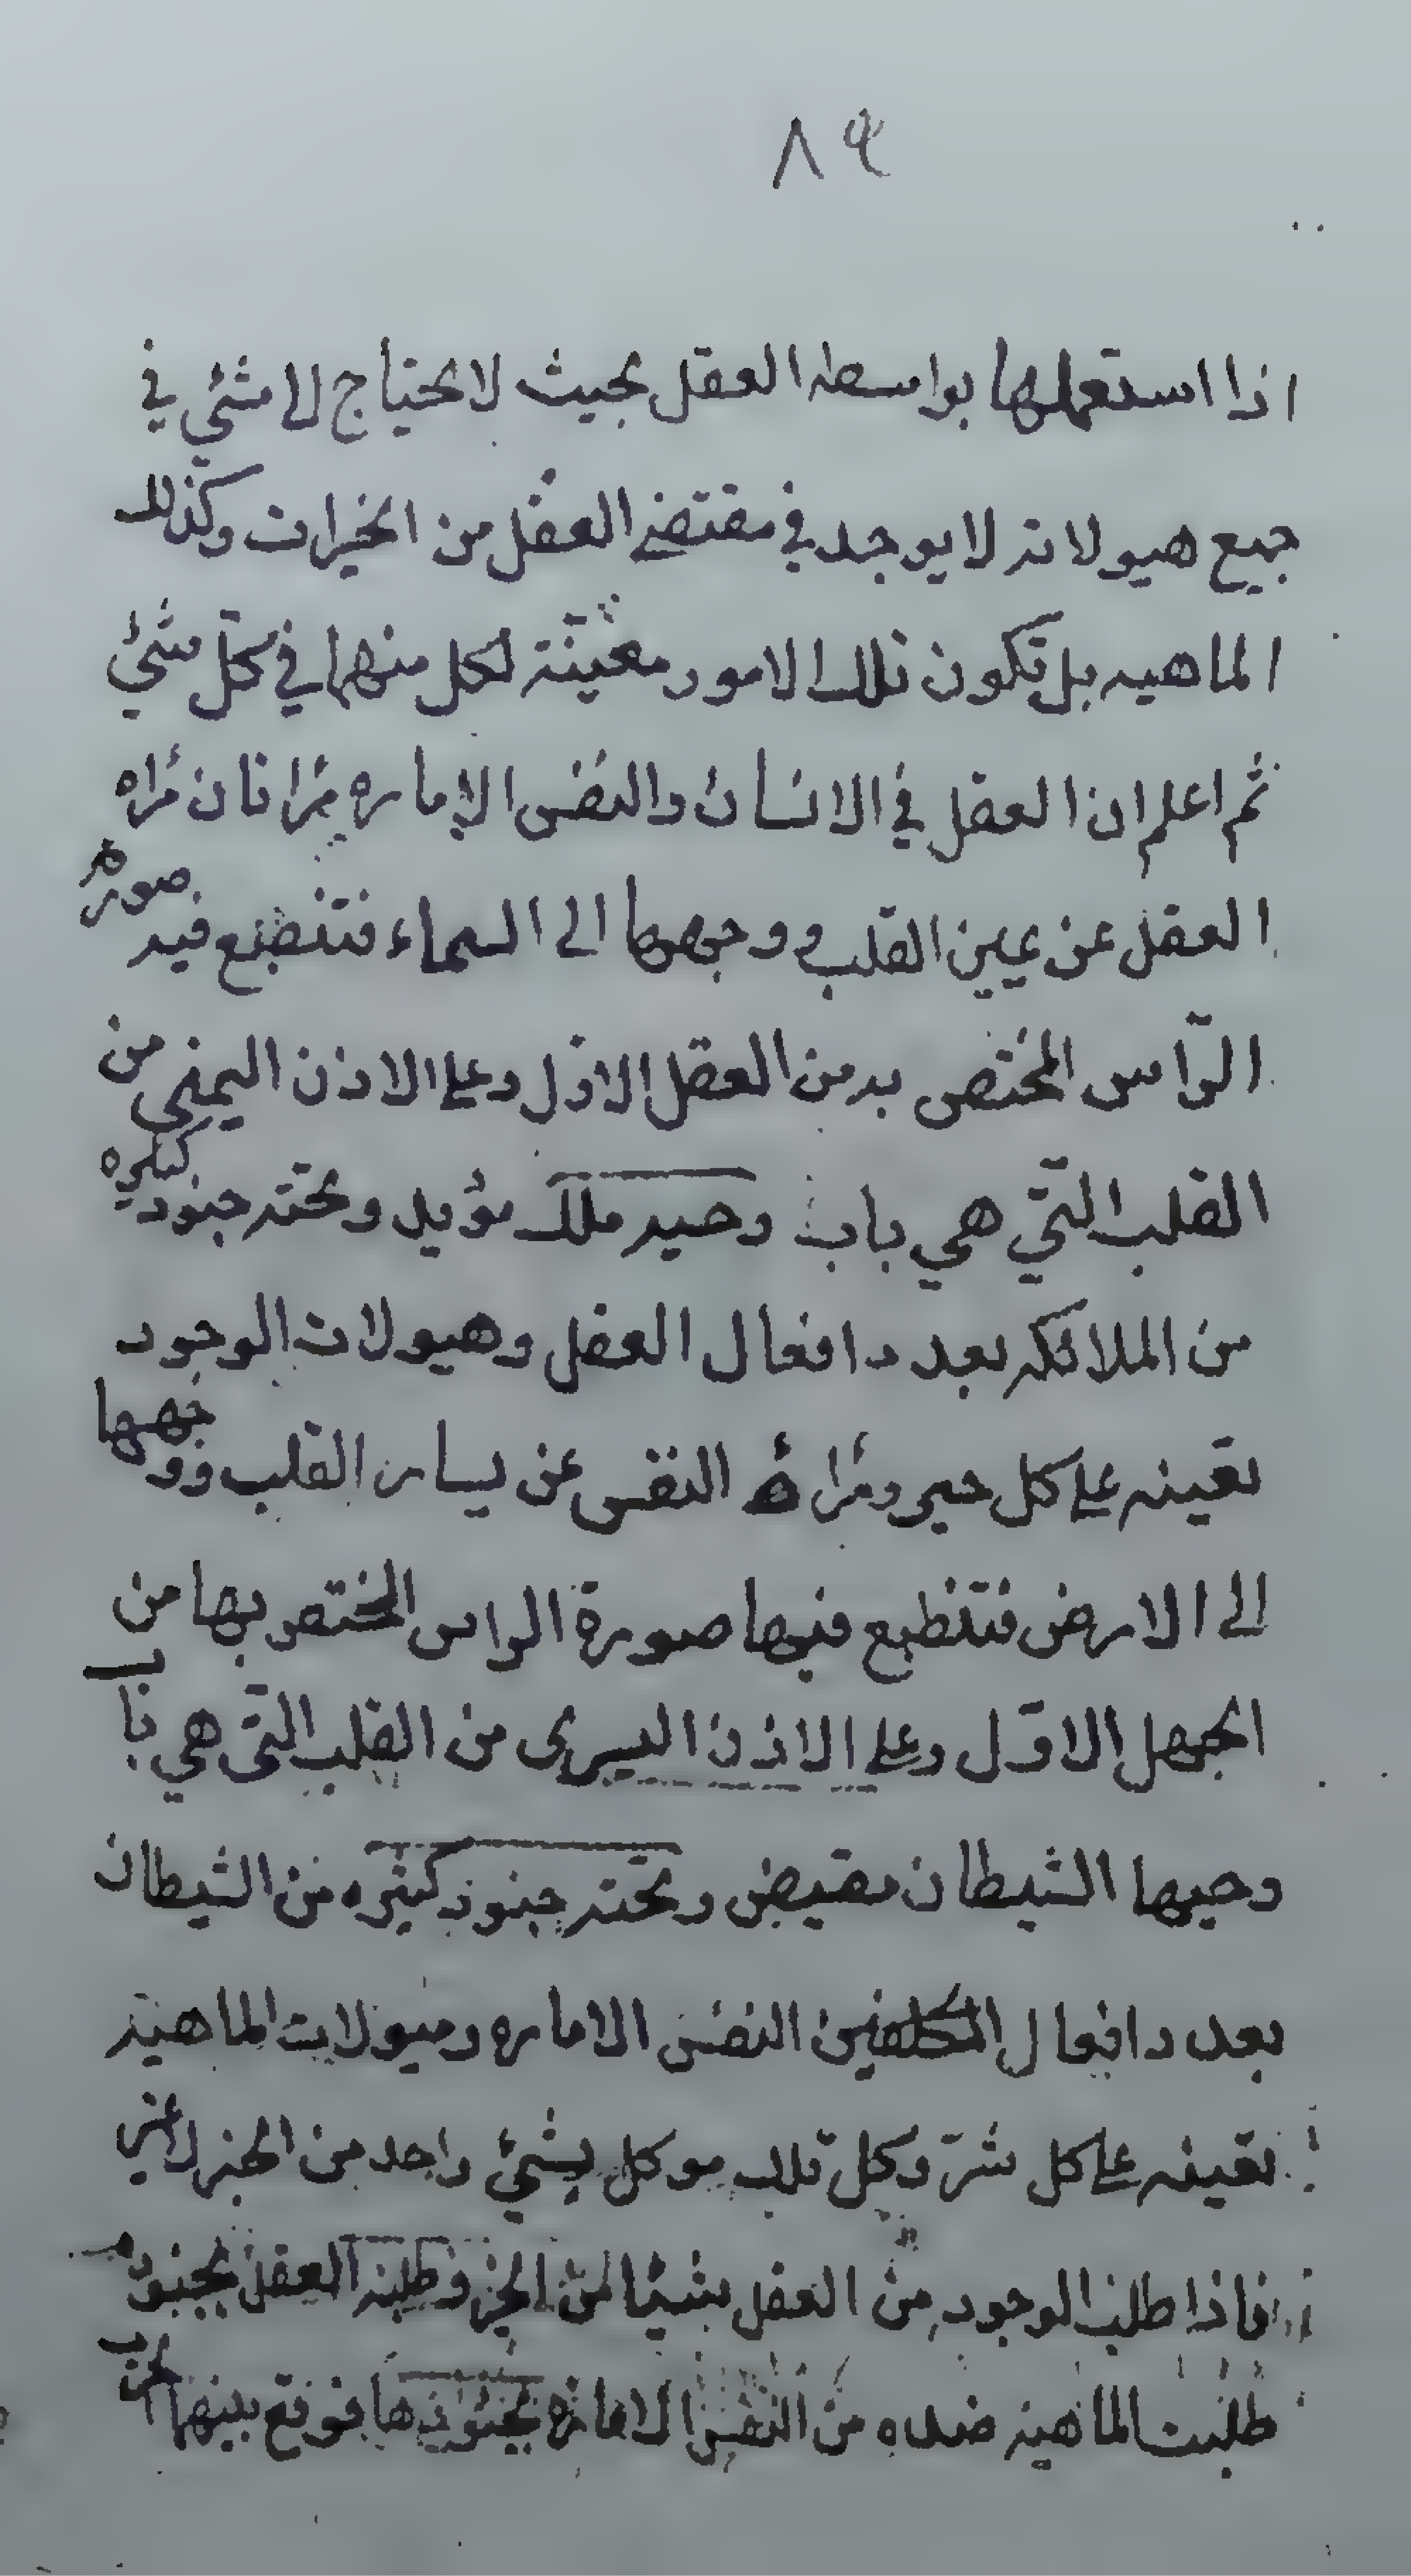 ٨٤
اذا استعملها بواسطه العقل بحيث لا يحتاج الى شئي في
جميع هيولاته لا يوجد في مقتضى العقل من الخيرات وكذلك
الماهيه بل تكون تلك الامور معينة لكل منهما في كل شئ
ثم اعلم ان العقل في الانسان والنفس الاماره مرأتان مرأه
العقل عن يمين القلب ووجهها الى السماء فتنطبع فيه صورة
الرأس المختص به من العقل الاول وعلى الاذن اليمنى من
القلب التي هي باب وحيه ملك مؤيد وتحته جنود كثيره
من الملائكه بعدد افعال العقل وهيولات الوجود
تعينه على كل خير ومرأة النفس عن يسار القلب ووجهها
الى الارض فتنطبع فيها صورة الراس المختص بها من
الجهل الاول وعلى الاذن اليسرى من القلب التي هي باب
وحيها الشيطان مقيض وتحته جنود كثيره من الشيطان
بعدد افعال النفس الاماره وهيولات الماهية
تعينه على كل شر وكل ملك موكل بشئ واحد من الخير لا غير
فاذا طلب الوجود من العقل شيئا من الخير وطلبه العقل بجنوده
طلبت الماهيه ضده من النفس الاماره بجنودها فوقع بينهما الحرب